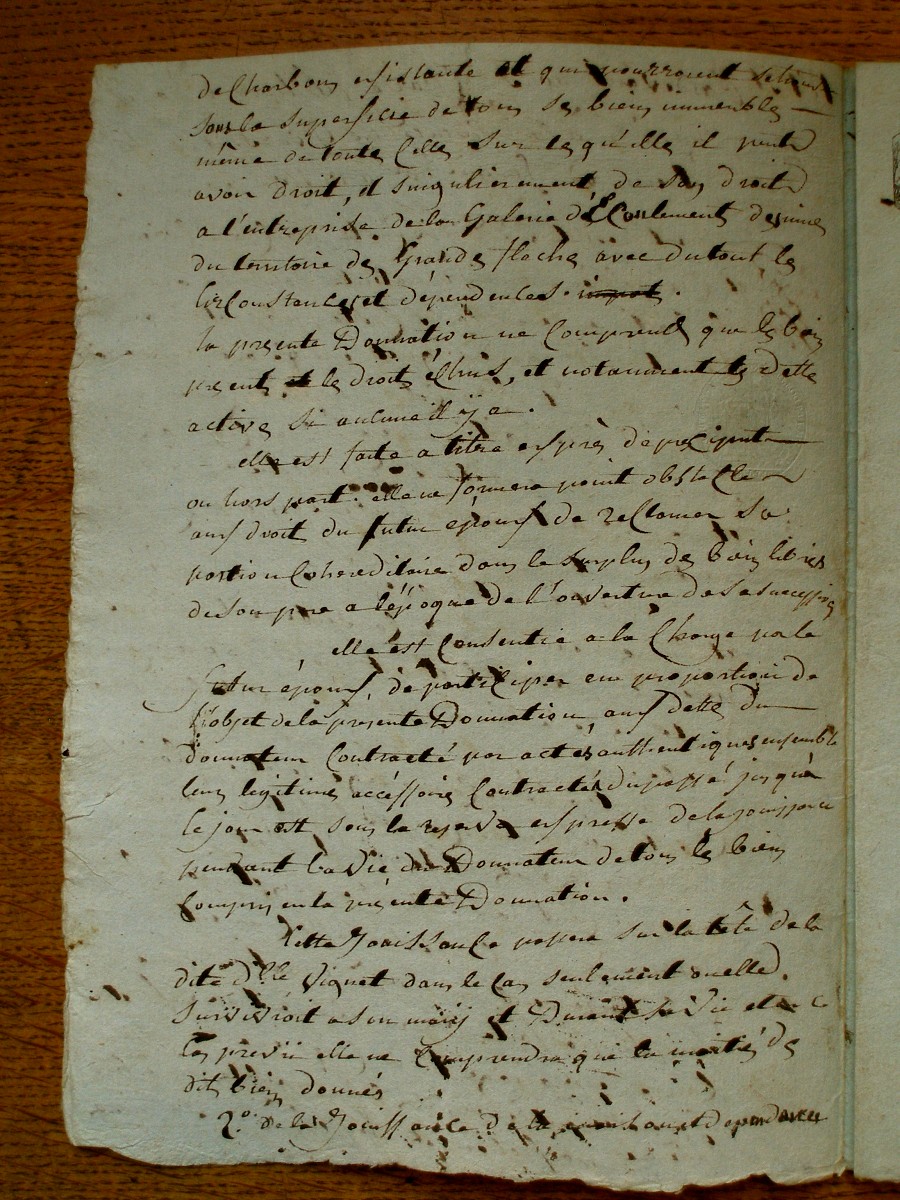 de Charbons existante et qui pourroient se trouver
sous la superficie de tous ses biens immeubles
même de toute celles sur lesqu'elle il peut
avoir droit, et singulierement de son droit
a l'entreprise de la Galerie d'Ecoulement des mines
du territoire de Grande floche avec du tout les
circonstances et dépendences.
la presente Donnation ne comprend que les biens
present et les droits échus, et notamment les dette
actives si aucune il y a.
elle est faite a titre exprès de preciput
ou hors part. elle ne formera point obstacle
aux droit du futur epoux de reclamer sa
portion cohereditaire dans le surplus des biens libres
de son pere a l'époque de l'ouverture de sa succession
elle est Consentie a la Charge par le
futur époux, de participer en proportion de
l'objet de la presente Donnation aux dette du
donnateur Contracté par actes authentiques ensemble
leurs légitimes accéssoires Contractés du passé jusqu'a
le jour et sous la reserve expresse de la jouissance
pendant la vie du Donnateur de tous les biens
compris en la présente Donnation.
Cette Jouissance passera sur la tête de la
dite d.lle Vignet dans le cas seulement ou elle
Survivroit a son mary et Durant sa vie et en ce
cas prevu elle ne comprendra que la moitié des
dits biens donnés
2.o de la Jouissance de la